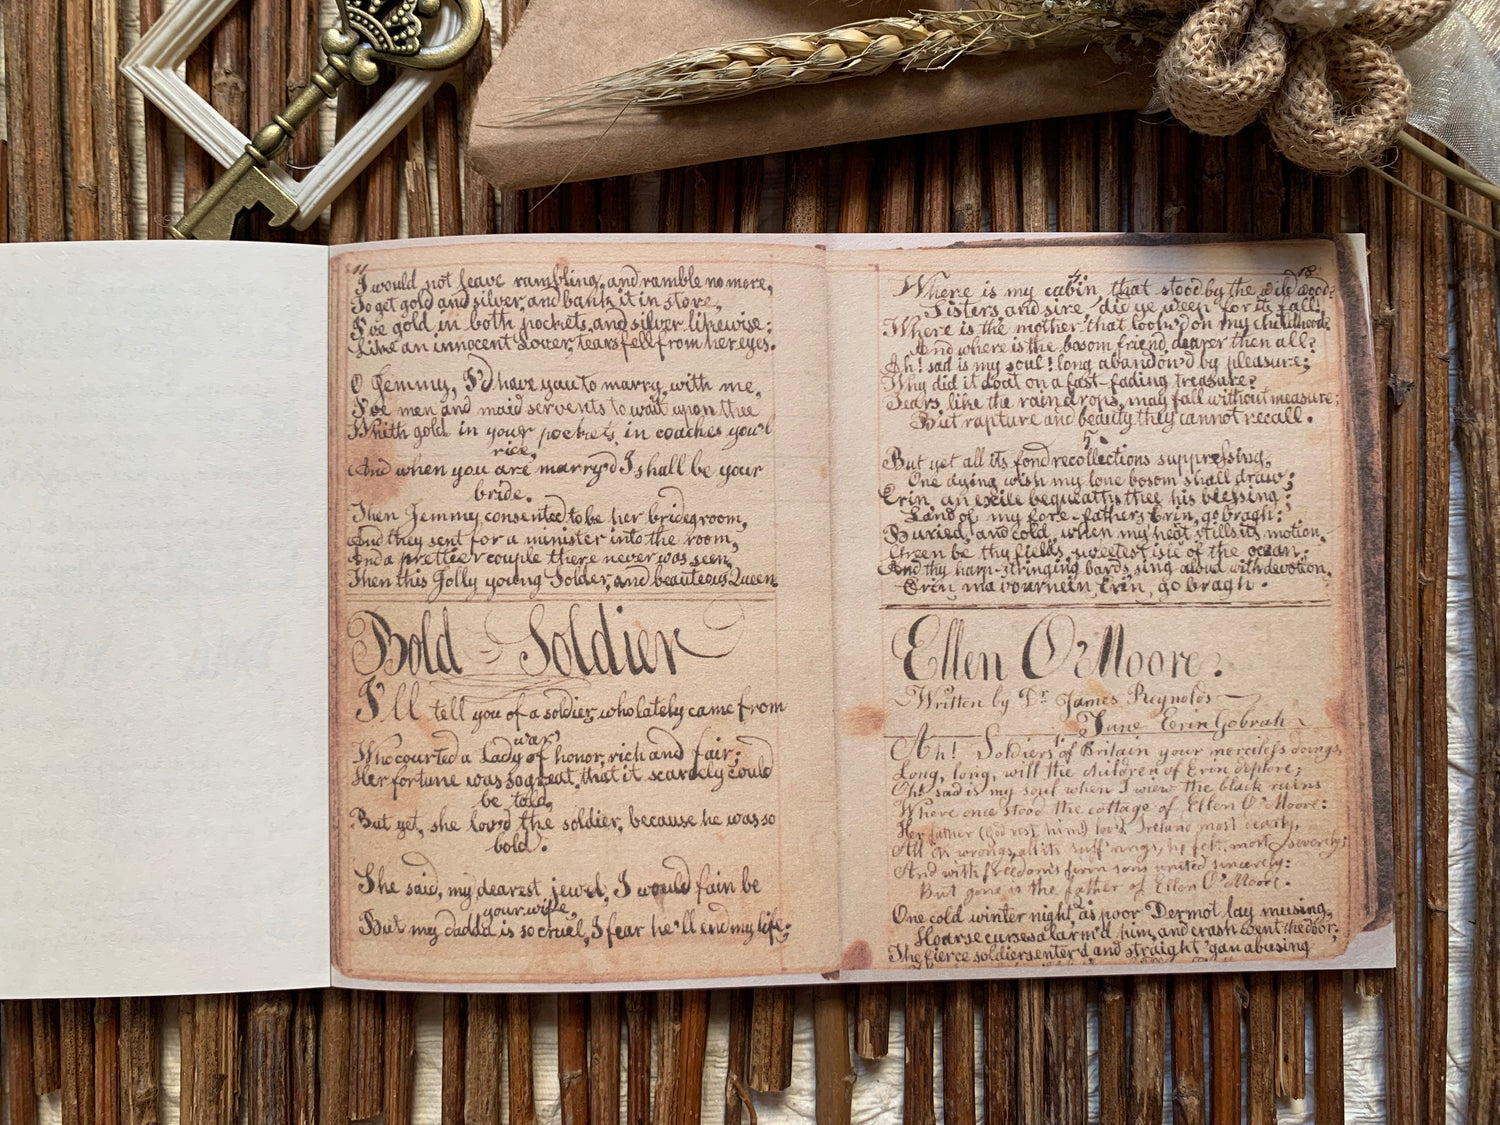 I would not leave rambling, and ramble no more,
To get gold and silver, and bank it in store,
I've gold in both pockets, and silver likewise:
Like an innocent lover, tears fell from her eyes.
O Jemmy, I'd have you to marry, with me,
I've men and maid servants to wait upon thee
With gold in your pockets, in coaches you'l
ride,
And when you are marry'd I shall be your
bride.
Then Jemmy consented to be her bridegroom,
And they sent for a minister into the room,
And a prettier couple there never was seen,
Then this Jolly young Solder, and beauteous Queen
Bold Soldier
I'll tell you of a soldier, who lately came from
war,
Who courted a Lady of honor, rich and fair;
Her fortune was so great, that it scarcely could
be told,
But yet, she lov'd the soldier, because he was so
bold.
She said, my dearest jewel, I would fain be
your wife,
But my dadda is so cruel, I fear he'll end my life;
18
4
Where is my cabin, that stood by the wild wood?
Sisters, and sire, did ye weep for its fall!
Where is the mother, that look'd on my childhood?
And where is the bosom friend, dearer then all?
Ah! sad is my soul! long abandon'd by pleasure;
Why did it doat on a fast-fading treasure?
Tears, like the rain drops, may fall without measure;
But rapture and beauty they cannot recall.
5.
But yet all its fond recollections suppressing,
One dying wish my lone bosom shall draw;
Erin, an exile bequeaths thee his blessing;
Land of my fore-fathers Erin, go bragh:
Buried, and cold, when my heat stills its motion,
Green be thy fields, sweetest isle of the ocean;
And thy harp-stringing bards, sing aloud with devotion,
Erin ma vournein, Erin, go bragh.
Ellen O'Moore.
Written by Dr James Reynolds
June Erin Gobrah
1.
Ah! Soldiers of Britain your merciless doings
Long, long, will the children of Erin deplore;
Oh! sad is my soul when I view the black ruins
Where once stood the cottage of Ellen O'Moore:
Her father (God rest him) lov'd Ireland most dearly,
All its wrongs, all its suff'rings, he felt most severely;
And with freedom's firm sons united sincerely:
But gone is the father of Ellen O'Moore.
2.
One cold winter night, as poor Dermot lay musing,
Hoarse curses alarm'd him, and crash went the door;
The fierce soldiers enter'd and straight 'gan abusing